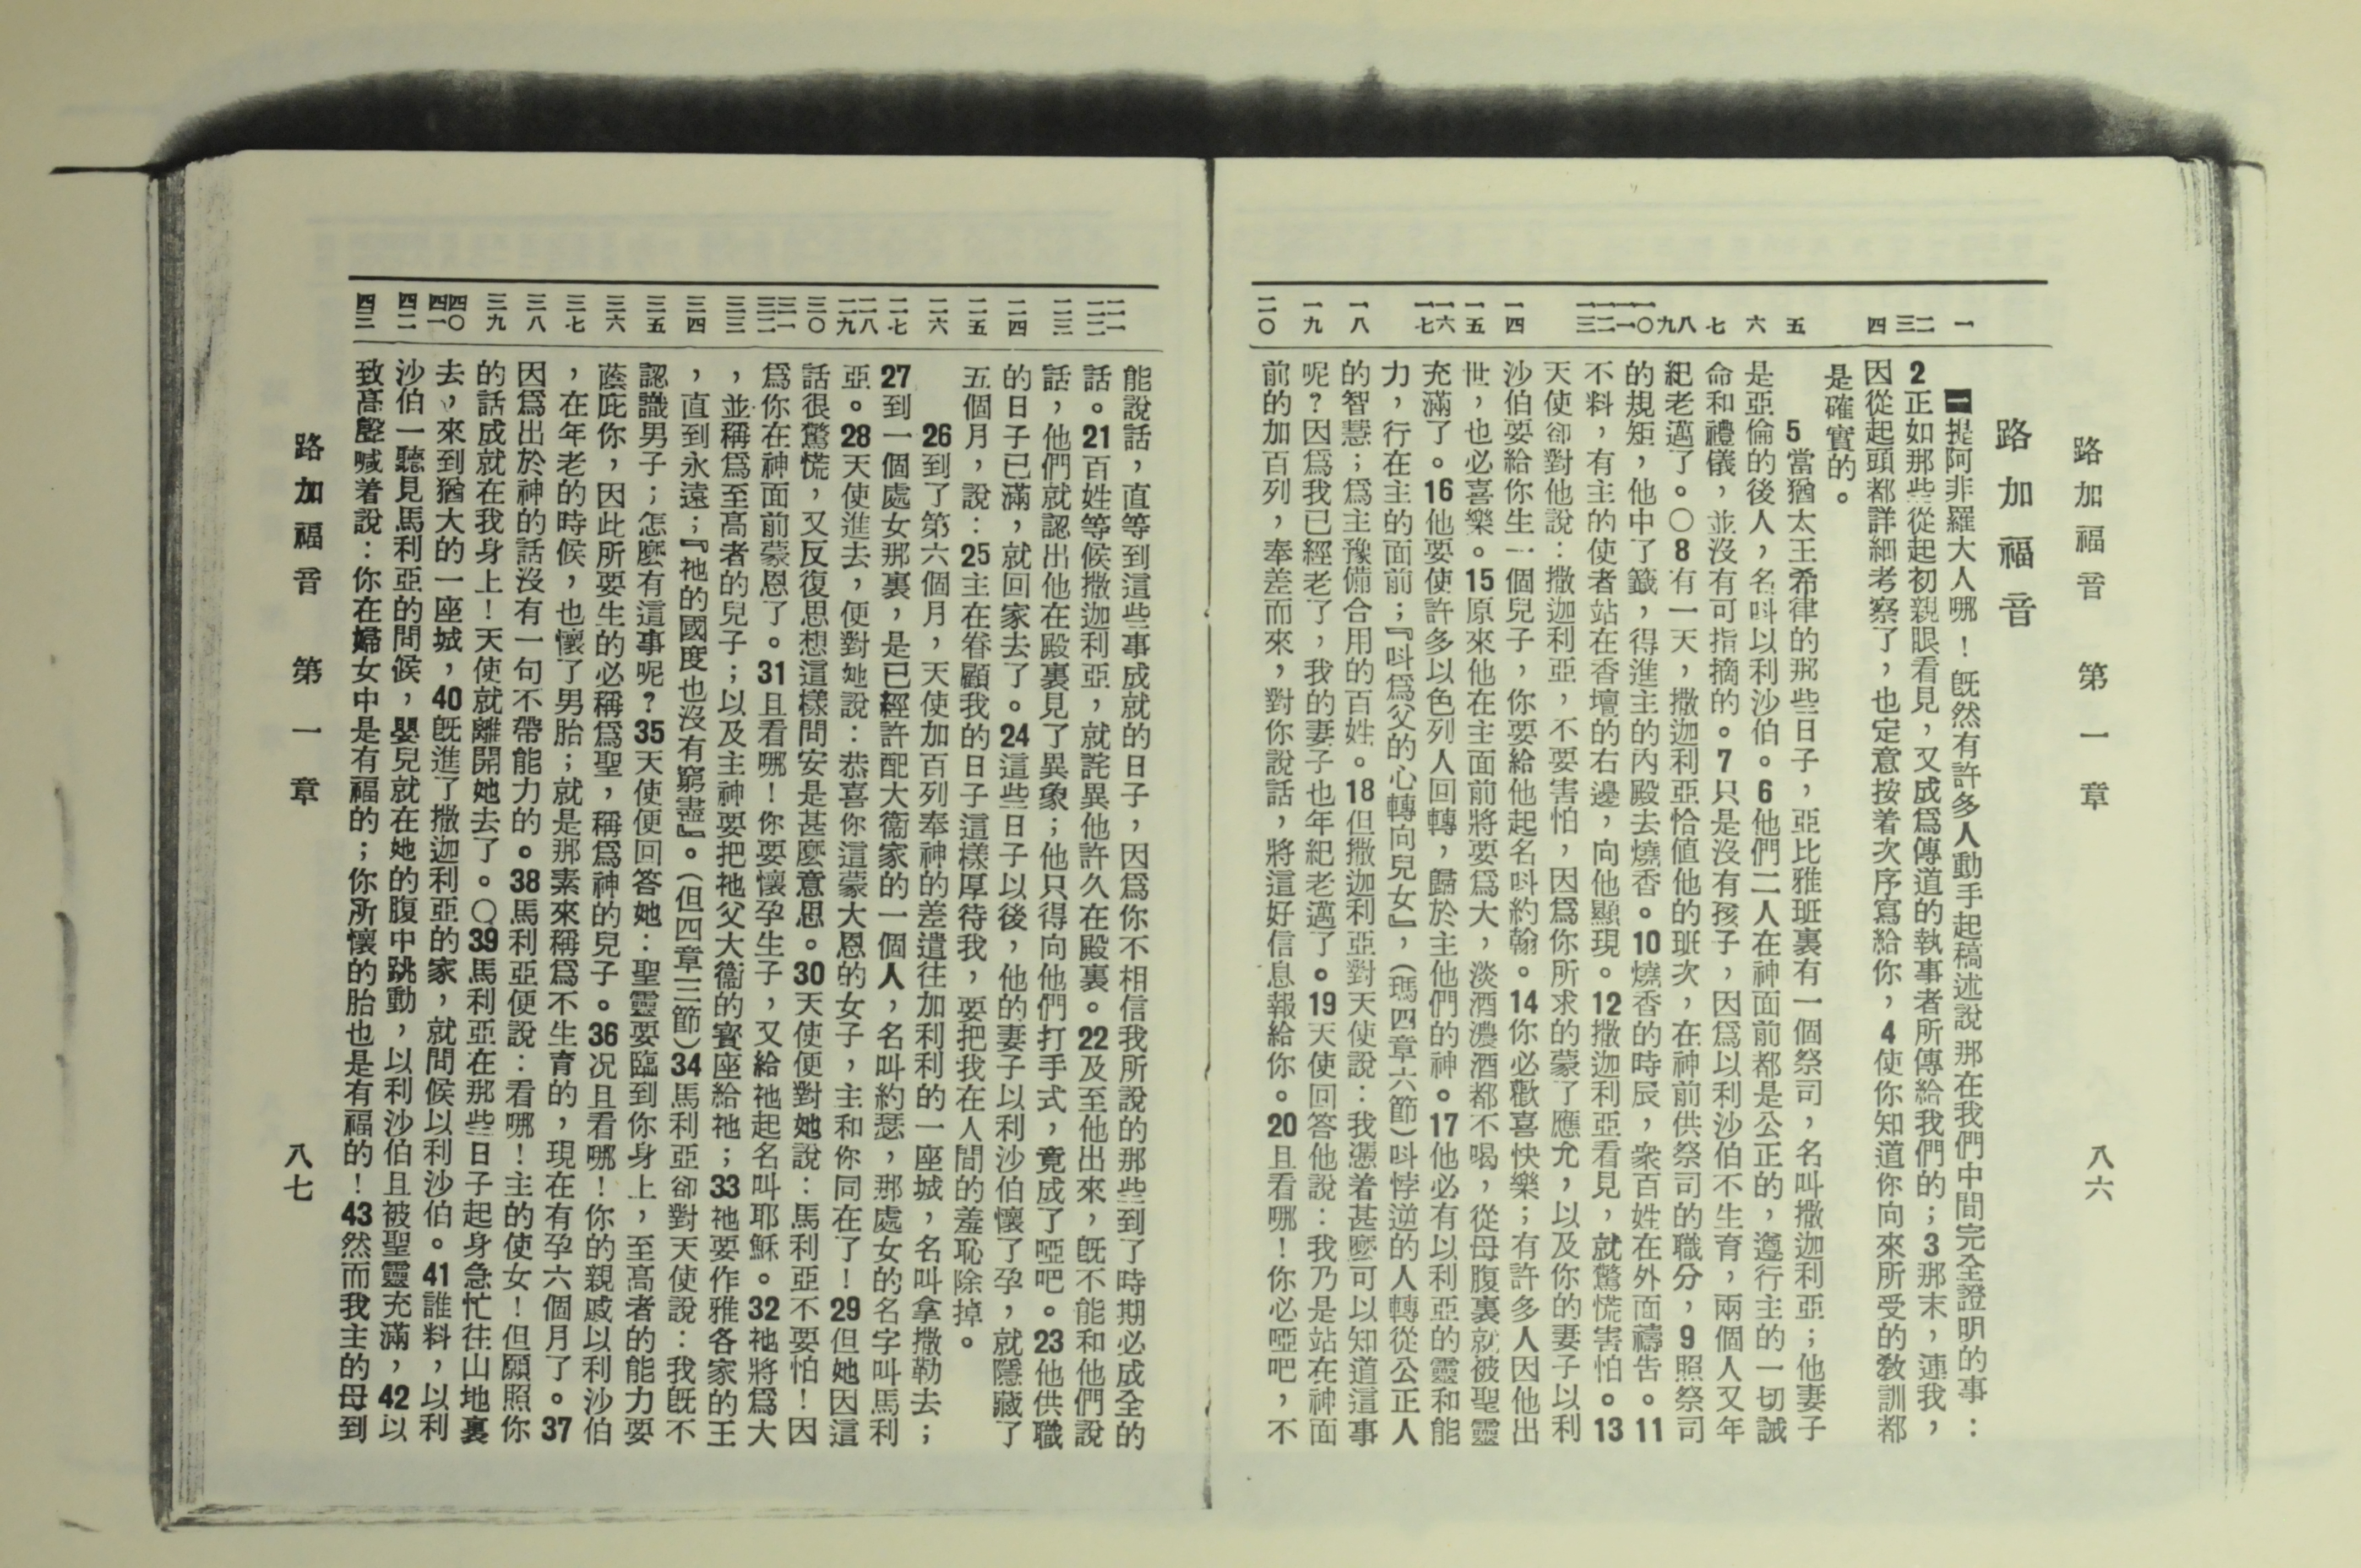 路加福音 第一章 八六
路加福音
一 二 三 四 五 六 七 八 九 一〇 一一 一二 一三 一四 一五 一六 一七 一八 一九 二〇
一提阿非羅大人哪！旣然有許多人動手起稿述說那在我們中間完全證明的事：
2正如那些從起初親眼看見，又成爲傳道的執事者所傳給我們的；3那末，連我，
因從起頭都詳細考察了，也定意按着次序寫給你，4使你知道你向來所受的敎訓都
是確實的。
5當猶太王希律的那些日子，亞比雅班裏有一個祭司，名叫撒迦利亞；他妻子
是亞倫的後人，名呌以利沙伯。6他們二人在神面前都是公正的，遵行主的一切誡
命和禮儀，並沒有可指摘的。7只是沒有孩子，因爲以利沙伯不生育，兩個人又年
紀老邁了。〇8有一天，撒迦利亞恰値他的班次，在神前供祭司的職分，9照祭司
的規矩，他中了籤，得進主的內殿去燒香。10燒香的時辰，衆百姓在外面禱吿。11
不料，有主的使者站在香壇的右邊，向他顯現。12撒迦利亞看見，就驚慌害怕。13
天使卻對他說：撒迦利亞，不要害怕，因爲你所求的蒙了應允，以及你的妻子以利
沙伯要給你生一個兒子，你要給他起名呌約翰。14你必歡喜快樂；有許多人因他出
世，也必喜樂。15原來他在主面前將要爲大，淡酒濃酒都不喝，從母腹裏就被聖靈
充滿了。16他要使許多以色列人回轉，歸於主他們的神。17他必有以利亞的靈和能
力，行在主的面前；『呌爲父的心轉向兒女』，（瑪四章六節）呌悖逆的人轉從公正人
的智慧；爲主豫備合用的百姓。18但撒迦利亞對天使說：我憑着甚麼可以知道這事
呢？因爲我已經老了，我的妻子也年紀老邁了。19天使回答他說：我乃是站在神面
前的加百列，奉差而來，對你說話，將這好信息報給你。20且看哪！你必啞吧，不
二一 二二 二三 二四 二五 二六 二七 二八 二九 三〇 三一 三二 三三 三四 三五 三六 三七 三八 三九 四〇 四一 四二 四三
能說話，直等到這些事成就的日子，因爲你不相信我所說的那些到了時期必成全的
話。21百姓等候撒迦利亞，就詫異他許久在殿裏。22及至他出來，旣不能和他們說
話，他們就認出他在殿裏見了異象；他只得向他們打手式，竟成了啞吧。23他供職
的日子已滿，就回家去了。24這些日子以後，他的妻子以利沙伯懷了孕，就隱藏了
五個月，說：25主在眷顧我的日子這樣厚待我，要把我在人間的羞恥除掉。
26到了第六個月，天使加百列奉神的差遣往加利利的一座城，名叫拿撒勒去；
27到一個處女那裏，是已經許配大衞家的一個人，名叫約瑟，那處女的名字叫馬利
亞。28天使進去，便對她說：恭喜你這蒙大恩的女子，主和你同在了！29但她因這
話很驚慌，又反復思想這樣問安是甚麼意思。30天使便對她說：馬利亞不要怕！因
爲你在神面前蒙恩了。31且看哪！你要懷孕生子，又給祂起名叫耶穌。32祂將爲大
，並稱爲至高者的兒子；以及主神要把祂父大衞的寶座給祂；33祂要作雅各家的王
，直到永遠；『祂的國度也沒有窮盡』。（但四章三節）34馬利亞卻對天使說：我旣不
認識男子；怎麼有這事呢？35天使便回答她：聖靈要臨到你身上，至高者的能力要
蔭庇你，因此所要生的必稱爲聖，稱爲神的兒子。36况且看哪！你的親戚以利沙伯
，在年老的時候，也懷了男胎；就是那素來稱爲不生育的，現在有孕六個月了。37
因爲出於神的話沒有一句不帶能力的。38馬利亞便說：看哪！主的使女！但願照你
的話成就在我身上！天使就離開她去了。〇39馬利亞在那些日子起身急忙往山地裏
去，來到猶大的一座城，40旣進了撒迦利亞的家，就問候以利沙伯。41誰料，以利
沙伯一聽見馬利亞的問候，嬰兒就在她的腹中跳動，以利沙伯且被聖靈充滿，42以
致高聲喊着說：你在婦女中是有福的；你所懷的胎也是有福的！43然而我主的母到
路加福音 第一章 八七